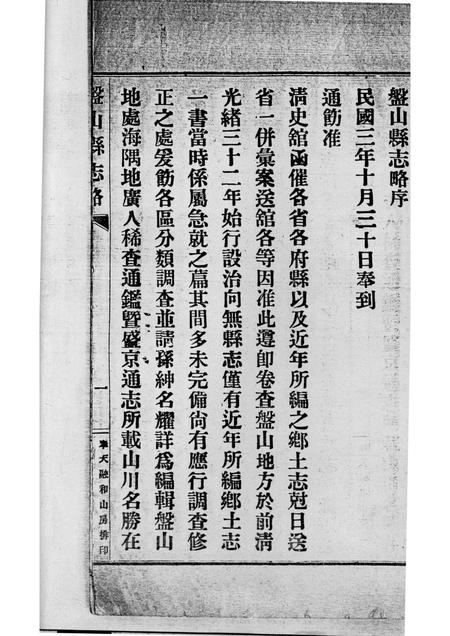 盤山縣志略序
民國三年十月三十日奉到
通飭准
清史舘函催各省各府縣以及近年所編之鄉土志尅日送
省一併彙案送舘各等因准此遵即卷查盤山地方於前清
光緒三十二年始行設治向無縣志僅有近年所編鄉土志
一書當時係屬急就之篇其間多未完備尙有應行調查修
正之處爰飭各區分類調查並請孫紳名耀詳爲編輯盤山
地處海隅地廣人稀查通鑑曁盛京通志所載山川名勝在
盤山縣志略
一
奉天融和山房搨印